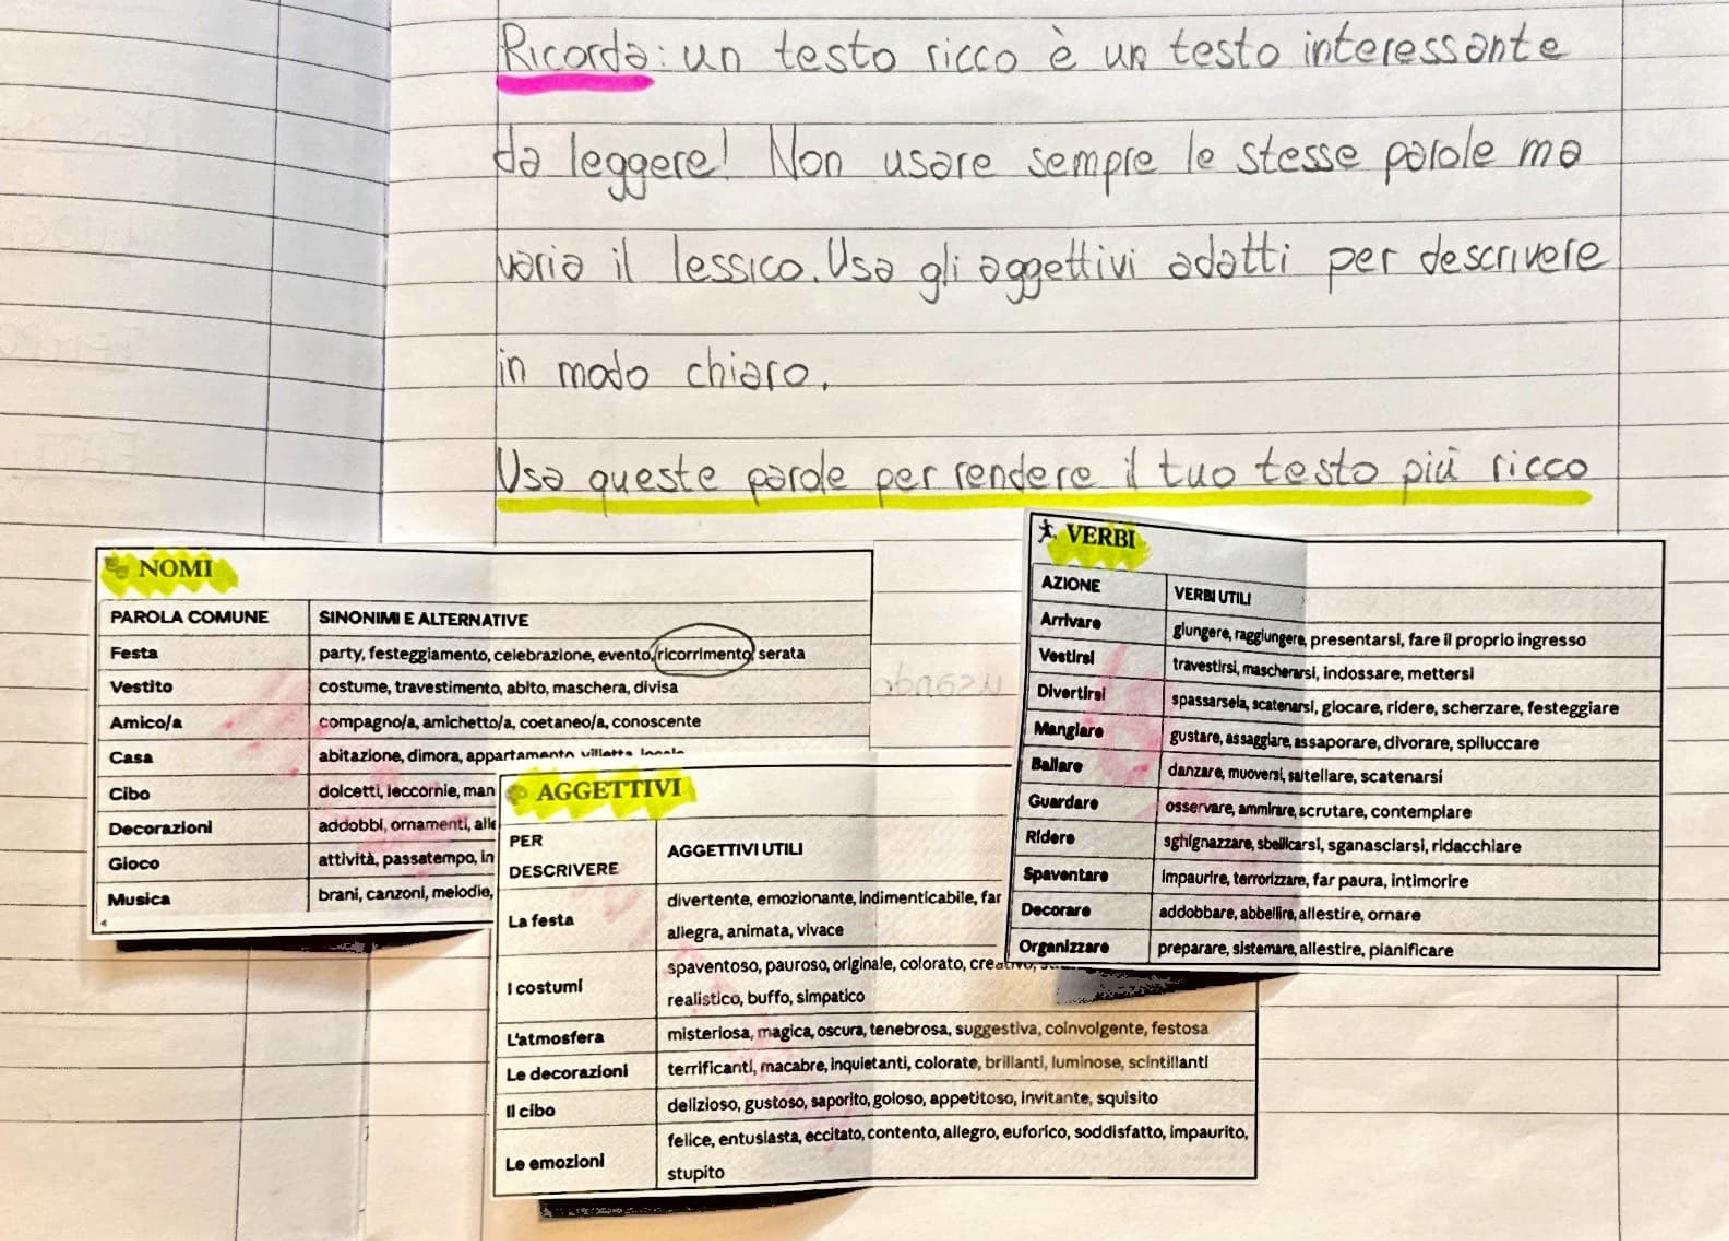 Ricorda: un testo ricco è un testo interessante
da leggere! Non usare sempre le stesse parole ma
varia il lessico. Usa gli aggettivi adatti per descrivere
in modo chiaro.
Usa queste parole per rendere il tuo testo più ricco
NOMI
PAROLA COMUNE SINONIMI E ALTERNATIVE
Festa party, festeggiamento, celebrazione, evento, ricorrimento, serata
Vestito costume, travestimento, abito, maschera, divisa
Amico/a compagno/a, amichetto/a, coetaneo/a, conoscente
Casa abitazione, dimora, appartamento, villetta, locale
Cibo dolcetti, leccornie, man
Decorazioni addobbi, ornamenti, alle
Gioco attività, passatempo, in
Musica brani, canzoni, melodie,
VERBI
AZIONE VERBI UTILI
Arrivare giungere, raggiungere, presentarsi, fare il proprio ingresso
Vestirsi travestirsi, mascherarsi, indossare, mettersi
Divertirsi spassarsela, scatenarsi, giocare, ridere, scherzare, festeggiare
Mangiare gustare, assaggiare, assaporare, divorare, spiluccare
Ballare danzare, muoversi, saltellare, scatenarsi
Guardare osservare, ammirare, scrutare, contemplare
Ridere sghignazzare, sbellicarsi, sganasciarsi, ridacchiare
Spaventare impaurire, terrorizzare, far paura, intimorire
Decorare addobbare, abbellire, allestire, ornare
Organizzare preparare, sistemare, allestire, pianificare
AGGETTIVI
PER
DESCRIVERE
AGGETTIVI UTILI
La festa divertente, emozionante, indimenticabile, far
allegra, animata, vivace
I costumi spaventoso, pauroso, originale, colorato, creativo,
realistico, buffo, simpatico
L'atmosfera misteriosa, magica, oscura, tenebrosa, suggestiva, coinvolgente, festosa
Le decorazioni terrificanti, macabre, inquietanti, colorate, brillanti, luminose, scintillanti
Il cibo delizioso, gustoso, saporito, goloso, appetitoso, invitante, squisito
Le emozioni felice, entusiasta, eccitato, contento, allegro, euforico, soddisfatto, impaurito,
stupito